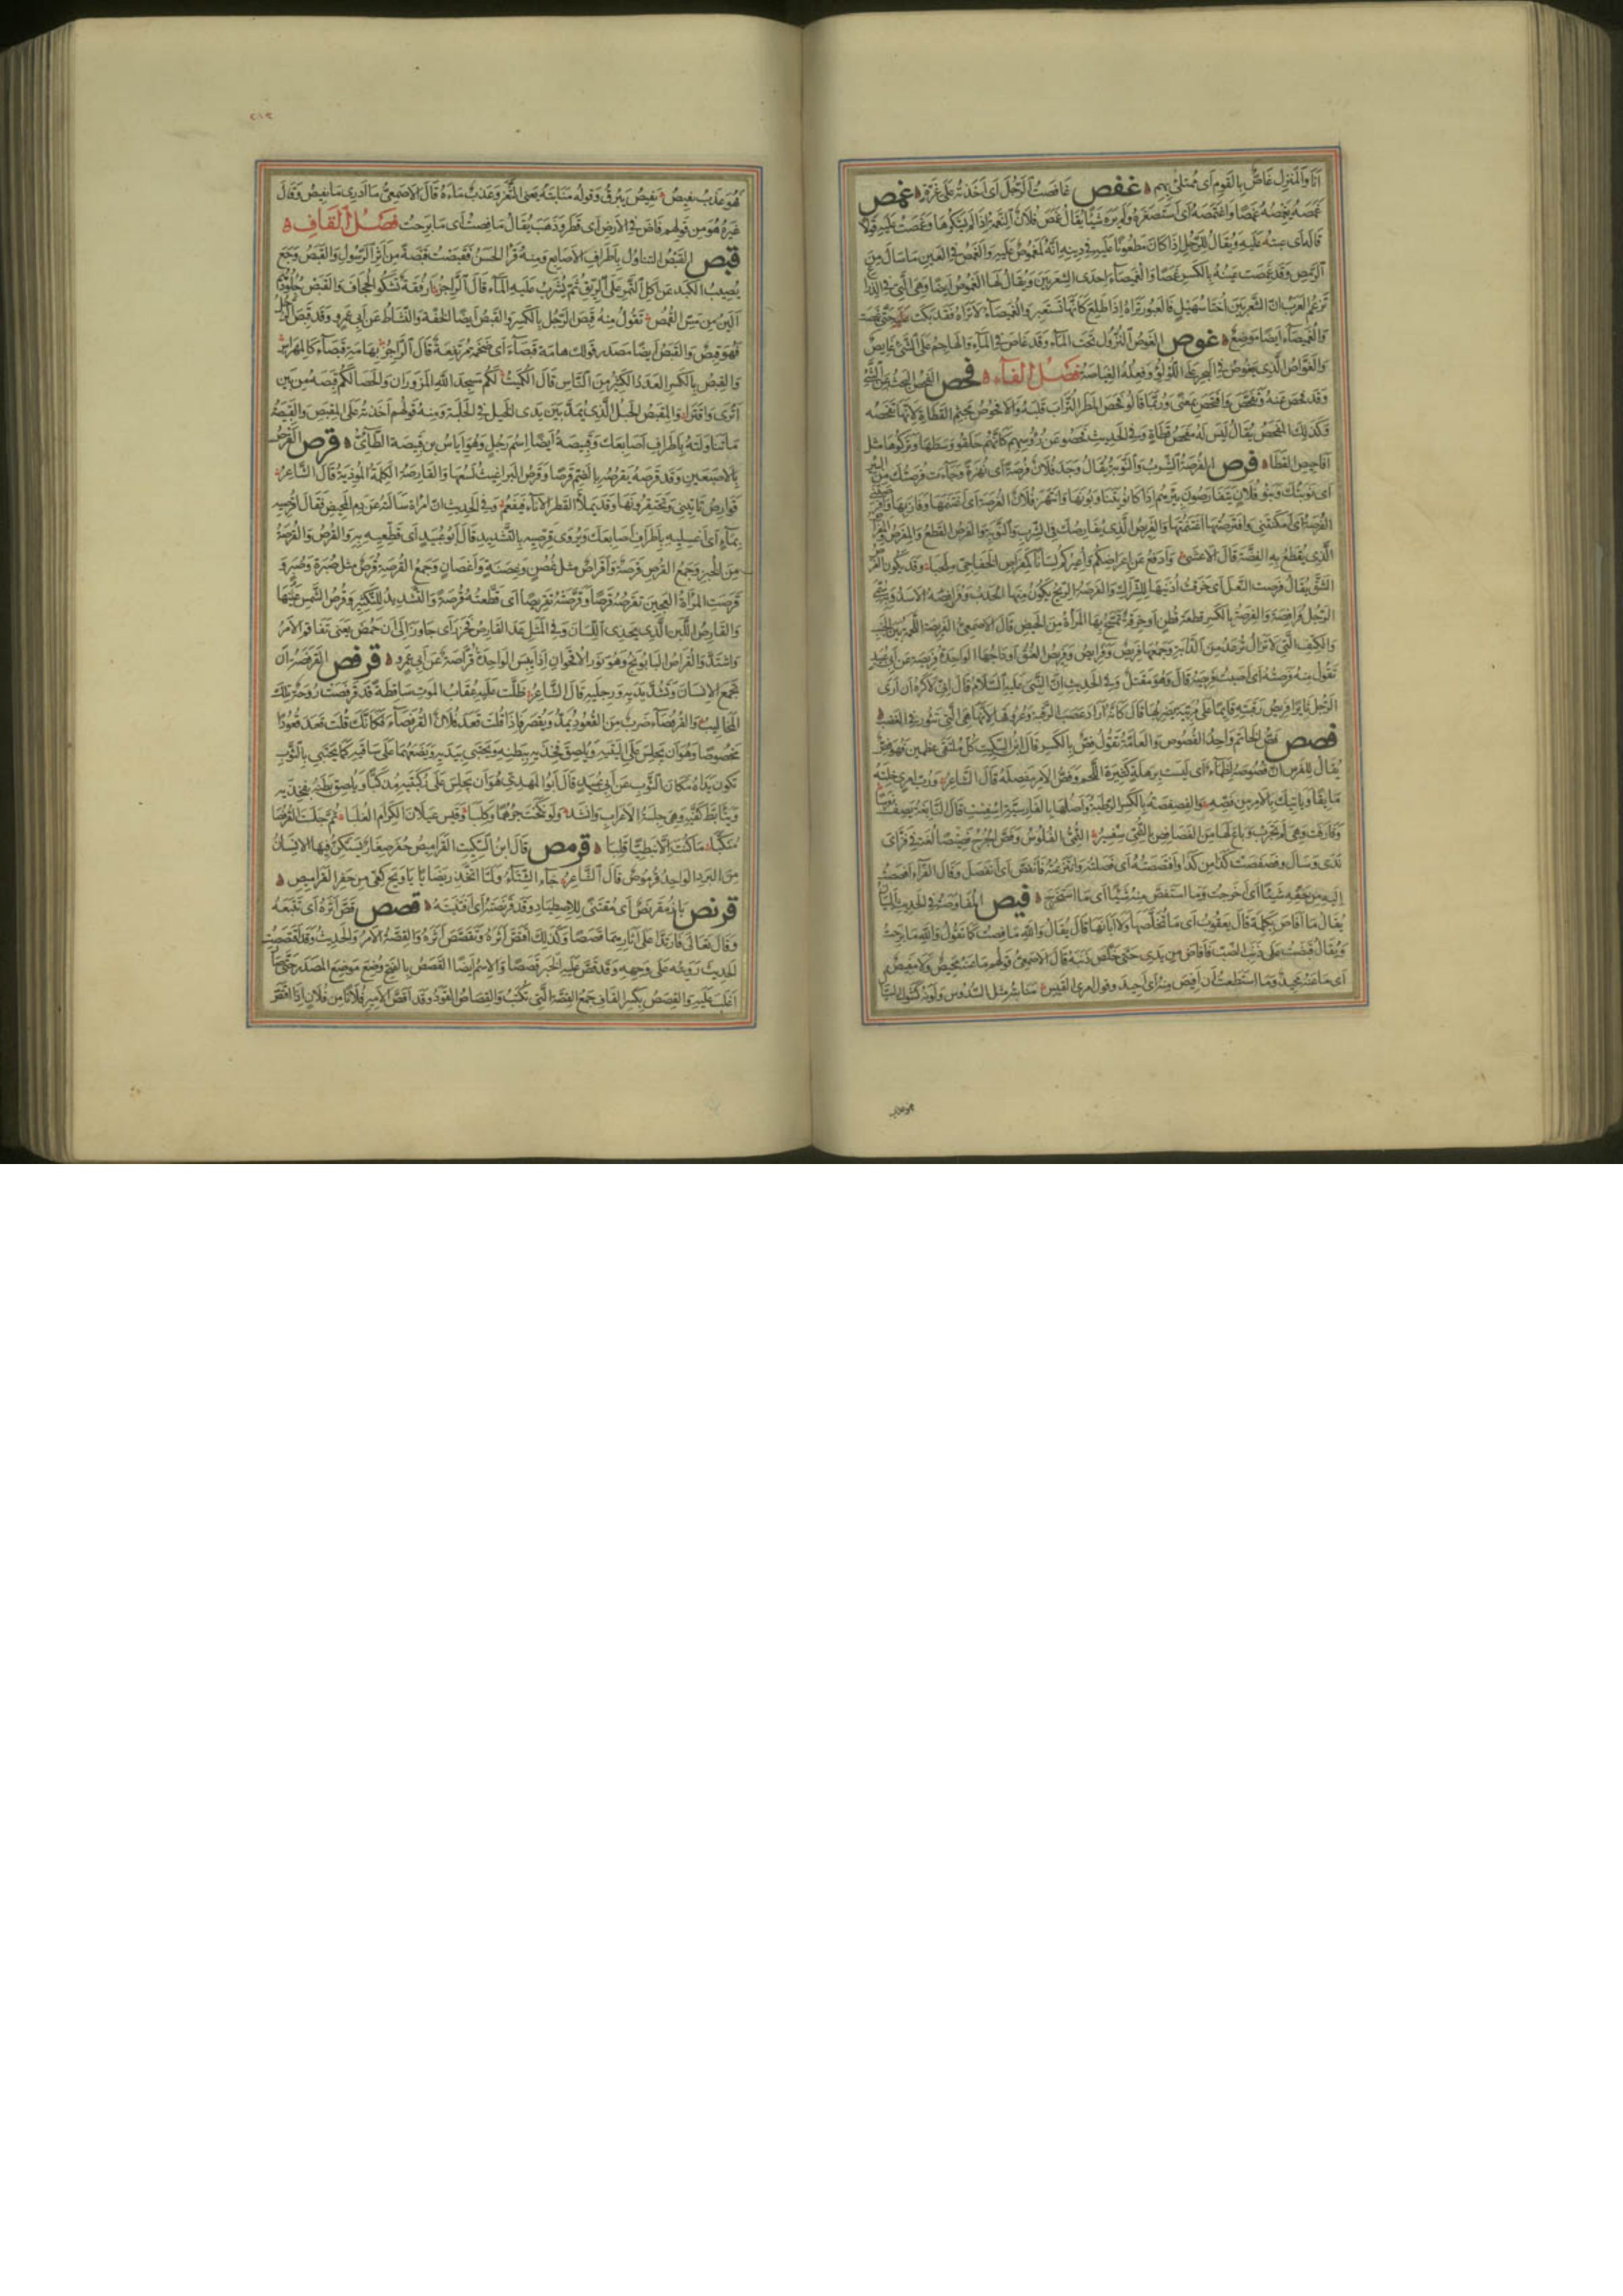 اناوالمنزل غاص بالقوم اى ممتلئ بهم غفص غافصت الرجل اى اخذته على غرة غمص
غمصه يغمصه غمصا واغتمصه اى استصغره ولم يره شيئا يقال غمص فلان النعمة اذا لم يشكرها وغمصت عليه قولا
قاله اى عبته عليه ويقال للرجل اذا كان مطعونا عليه فى دينه انه لمغموص عليه والغمص فى العين ما سال من
الرمص وقد غمصت عينه بالكسر غمصا والغميصاء احدى الشعريين ويقال لها الغموص ايضا وهى التى فى الذراع
تزعم العرب ان الشعريين اختا سهيل فالعبور تراه اذا طلع كانها تستعبر والغميصاء لا تراه فقد بكت عليه حتى غمصت
والغميصاء ايضا موضع غوص الغوص النزول تحت الماء وقد غاص فى الماء والهاجم على الشئ غايص
والغواص الذى يغوص فى البحر على اللؤلؤ وفعله الغياصة فصل الفاء فحص الفحص البحث عن الشئ
وقد فحص عنه وتفحص وافتحص بمعنى وربما قالوا فحص المطر التراب قلبه والافحوص مجثم القطاة لانها تفحصه
وكذلك المفحص يقال ليس له مفحص قطاة وفى الحديث فحصوا عن رؤوسهم كانهم حلقوا وسطها وتركوها مثل
افاحيص القطا فرص الفرصة الشرب والنوبة يقال وجد فلان فرصة اى نهزة وجاءت فرصتك من البئر
اى نوبتك وبنو فلان يتفارصون بئرهم اذا كانوا يتناوبونها وانتهز فلان الفرصة اى اغتنمها وفاز بها وافرصتنى
الفرصة اى امكنتنى وافترصتها اغتنمتها والفريص الذى يفارصك فى الشرب والنوبة والفرص القطع والمفرص والمفراص
الذى يقطع به الفضة قال الاعشى وادفع عن اعراضكم واعيركم لسانا كمفراص الخفاجى ملحبا وقد يكون الفرص
الشق يقال فرصت النعل اى خرقت اذنيها للشراك والفرصة الريح يكون منها الحدب وفرافصة الاسد وبه سمى
الرجل فرافصة والفرصة بالكسر قطعة قطن او خرقة تمسح بها المرأة من الحيض قال الاصمعى الفريصة اللحمة بين الجنب
والكتف التى لا تزال ترعد من الدابة وجمعها فريص وفرائص وفريص العنق اوداجها الواحدة فريصة عن ابى عبيد
تقول منه فرصته اى اصبت فريصته قال وهو مقتل وفى الحديث ان النبى عليه السلام قال انى لاكره ان ارى
الرجل ثايرا فريص رقبته قايما على مريته يضربها قال كانه اراد عصب الرقبة وعروقها لانها هى التى تثور فى الغضب
فصص فص الخاتم واحد الفصوص والعامة تقول فص بالكسر قال ابن السكيت كل ملتقى عظمين فهو فص
يقال للفرس ان فصوصه لظماء اى ليست برهلة كثيرة اللحم وفص الامر مفصله قال الشاعر ورب امرئ خلته
مايقا وياتيك بالامر من فصه والفصفصة بالكسر الرطبة واصلها بالفارسية اسفست قال النابغة يصف فرسا
وقارفت وهى لم تجرب وباع لها من الفصافص بالنمى سفسير النمى الفلوس وفص الجرح فصيصا لغة فى فزاى
ندى وسال وفصصت كذا من كذا وافتصصته اى فصلته وانتزعته فانفص اى انفصل وقال الفراء افصصت
اليه من حقه شيئا اى اخرجت وما استفص منه شيئا اى ما استخرج فيص المفاوصة فى الحديث البيان
يقال ما افاص بكلمة قال يعقوب اى ما تخلصها ولا ابانها قال يقال والله ما فصت كما تقول والله ما برحت
ويقال قبضت على ذنب الضب فافاص من يدى حتى خلص ذنبه قال الاصمعى قولهم ما عنه محيص ولا مفيص
اى ما عنه محيد وما استطعت ان افيص منه اى احيد وقول امرئ القيس منابته مثل السدوس ولونه كشوك السيال
هو عذب يفيص يفيص يبرق وقوله منابته يعنى الثغر وعذب ماءه قال الاصمعى ما ادرى ما يفيص وقال
غيره هو من قولهم فاص فى الارض اى قطر وذهب يقال ما فصت اى ما برحت فصل القاف
قبص القبص التناول باطراف الاصابع ومنه قرأ الحسن فقبصت قبصة من اثر الرسول والقبص وجع
يصيب الكبد عن اكل التمر على الريق ثم يشرب عليه الماء قال الراجز ارفقة تشكو الجحاف والقبص جلودهم
الين من مس القمص تقول منه قبص الرجل بالكسر والقبص ايضا الخفة والنشاط عن ابى عمرو وقد قبص الرجل
فهو قبص والقبص ايضا مصدر قولك هامة قبصاء اى ضخمة مرتفعة قال الراجز بهامة قبصاء كالمهراس
والقبص بالكسر العدد الكثير من الناس قال الكميت لكم مسجدا الله المزوران والحصا لكم قبصه من بين
اثرى واقترا والمقبص الحبل الذى يمد بين يدى الخيل فى الحلبة ومنه قولهم اخذته على المقبص والقبصة
ما تناولته باطراف اصابعك وقبيصة ايضا اسم رجل وهو اياس بن قبيصة الطائى قرص القرص
بالاصبعين وقد قرصه يقرصه بالضم قرصا وقرص البراغيث لسعها والقارصة الكلمة الموذية قال الشاعر
قوارص تاتينى وتحتقرونها وقد يملأ القطر الاناء فيفعم وفى الحديث ان امراة سالته عن دم المحيض فقال اقرصيه
بماء اى اغسليه باطراف اصابعك ويروى قرصيه بالتشديد قال ابو عبيد اى قطعيه به والقرص والقرصة
من الخبز وجمع القرص قرصة واقراص مثل غصن وغصنة واغصان وجمع القرصة قرص مثل صبرة وصبر و
قرصت المراة العجين تقرصه قرصا وقرصته تقريصا اى قطعته قرصة والتشديد للتكثير وقرص الشمس عينها
والقارص اللبن الذى يحذى اللسان وفى المثل عدا القارص فحزر اى جاوز الى ان حمض يعنى تفاقم الامر
واشتد والقراص البابونج وهو نور الاقحوان اذا يبس الواحدة قراصة عن ابى عمرو قرفص القرفصة ان
تجمع الانسان وتشد يديه ورجليه قال الشاعر ظلت عليه عقاب الموت ساقطة قد قرفصت روحه تلك
المخاليب والقرفصاء ضرب من القعود يمد ويقصر فاذا قلت قعد فلان القرفصاء فكانك قلت قعد قعودا
مخصوصا وهو ان يجلس على اليتيه ويلصق فخذيه ببطنه ويحتبى بيديه ويضعهما على ساقيه كما يحتبى بالثوب
تكون يداه مكان الثوب عن ابى عبيد قال ابو المهدى هو ان يجلس على ركبتيه منكبا ويلصق بطنه بفخذيه
ويتأبط كفيه وهى جلسة الاعراب وانشد ولو نكحت جرهما وكلبا وقيس عيلان الكرام الغلبا ثم جلست القرفصا
منكبا ما كنت الا نبطيا قلبا قرمص قال ابن السكيت القراميص حفر صغار يستكن فيها الانسان
من البرد الواحد قرموص قال الشاعر جاء الشتاء ولما اتخذ ربضا يا ويح كفى من حفر القراميص
قرنص باز مقرنص اى مقتنى للاصطياد وقد قرنصته اى اقتنيته قصص قص اثره اى تتبعه
وقال تعالى فارتدا على اثارهما قصصا وكذلك اقتص اثره وتقصص اثره والقصة الامر والحديث وقد اقتصصت
الحديث رويته على وجهه وقد قص عليه الخبر قصصا والاسم ايضا القصص بالفتح وضع موضع المصدر حتى صار
اغلب عليه والقصص بكسر القاف جمع القصة التى تكتب والقصاص القود وقد اقص الامير فلانا من فلان اذا اقتص